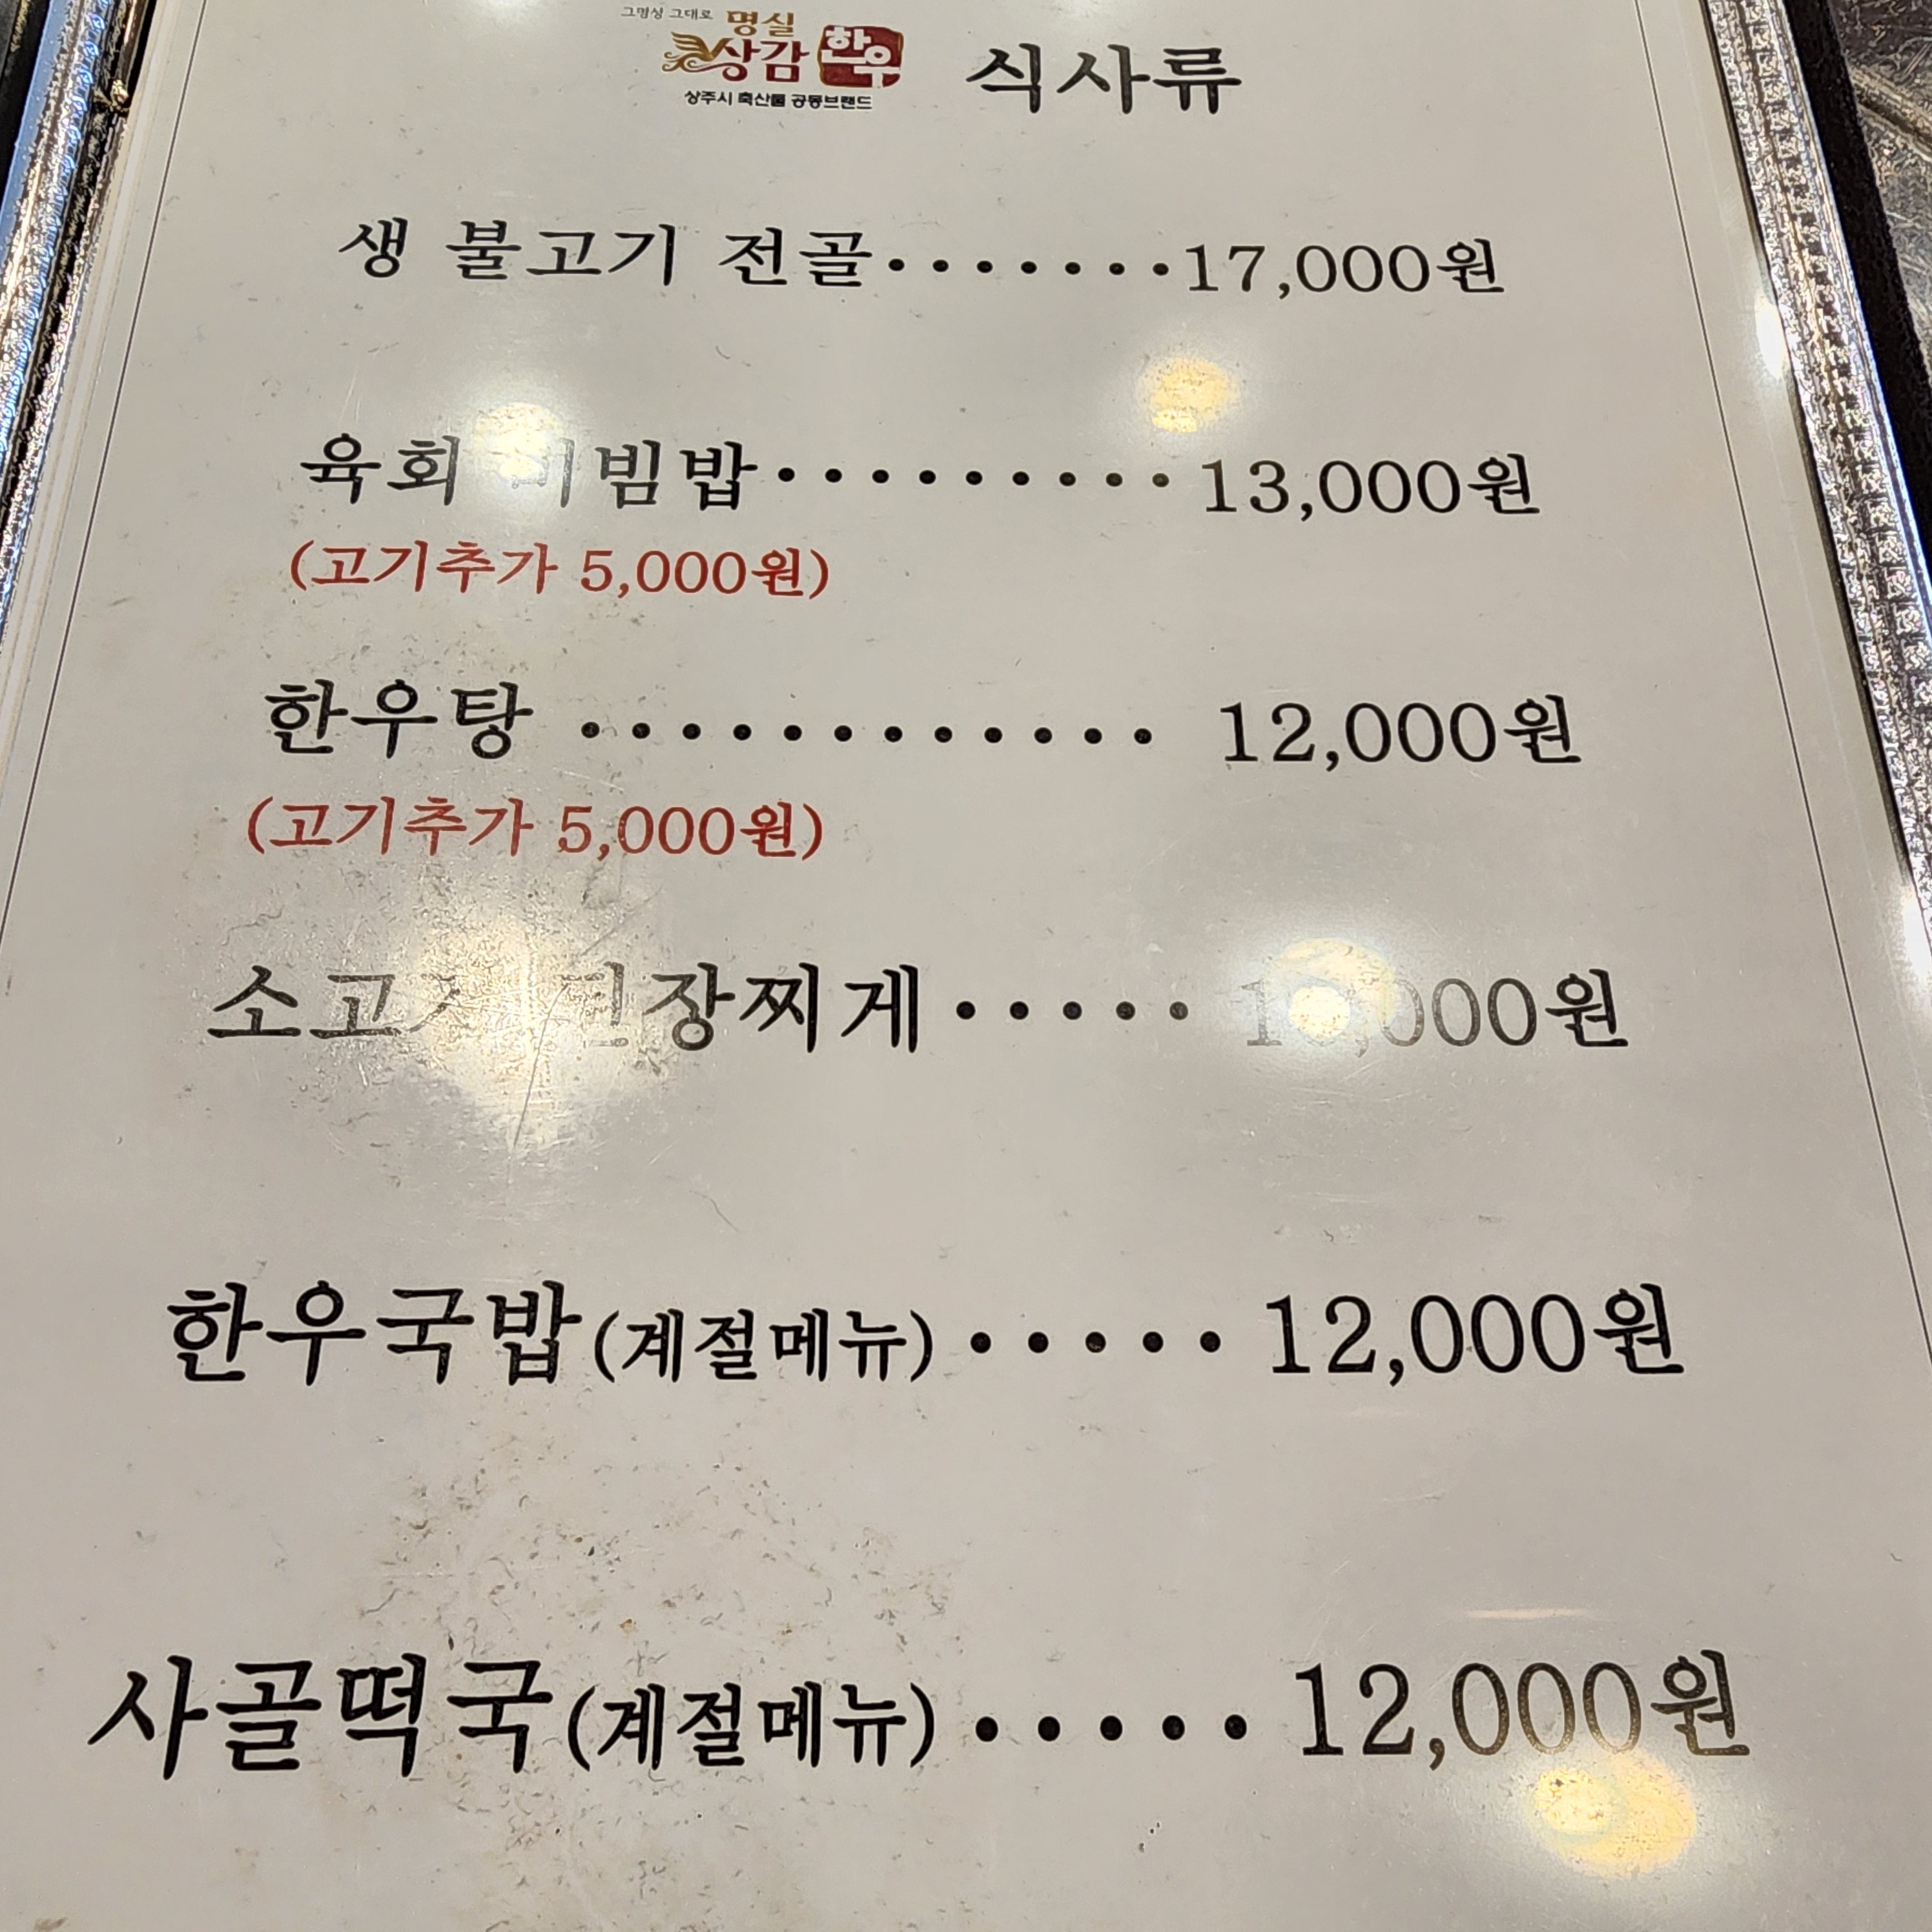 그명성 그대로
명실
상감 한우
상주시 축산물 공동브랜드
식사류
생 불고기 전골·······17,000원
육회 비빔밥·········13,000원
(고기추가 5,000원)
한우탕 ············ 12,000원
(고기추가 5,000원)
소고기 된장찌게·····
한우국밥(계절메뉴)·····12,000원
사골떡국(계절메뉴)·····12,000원